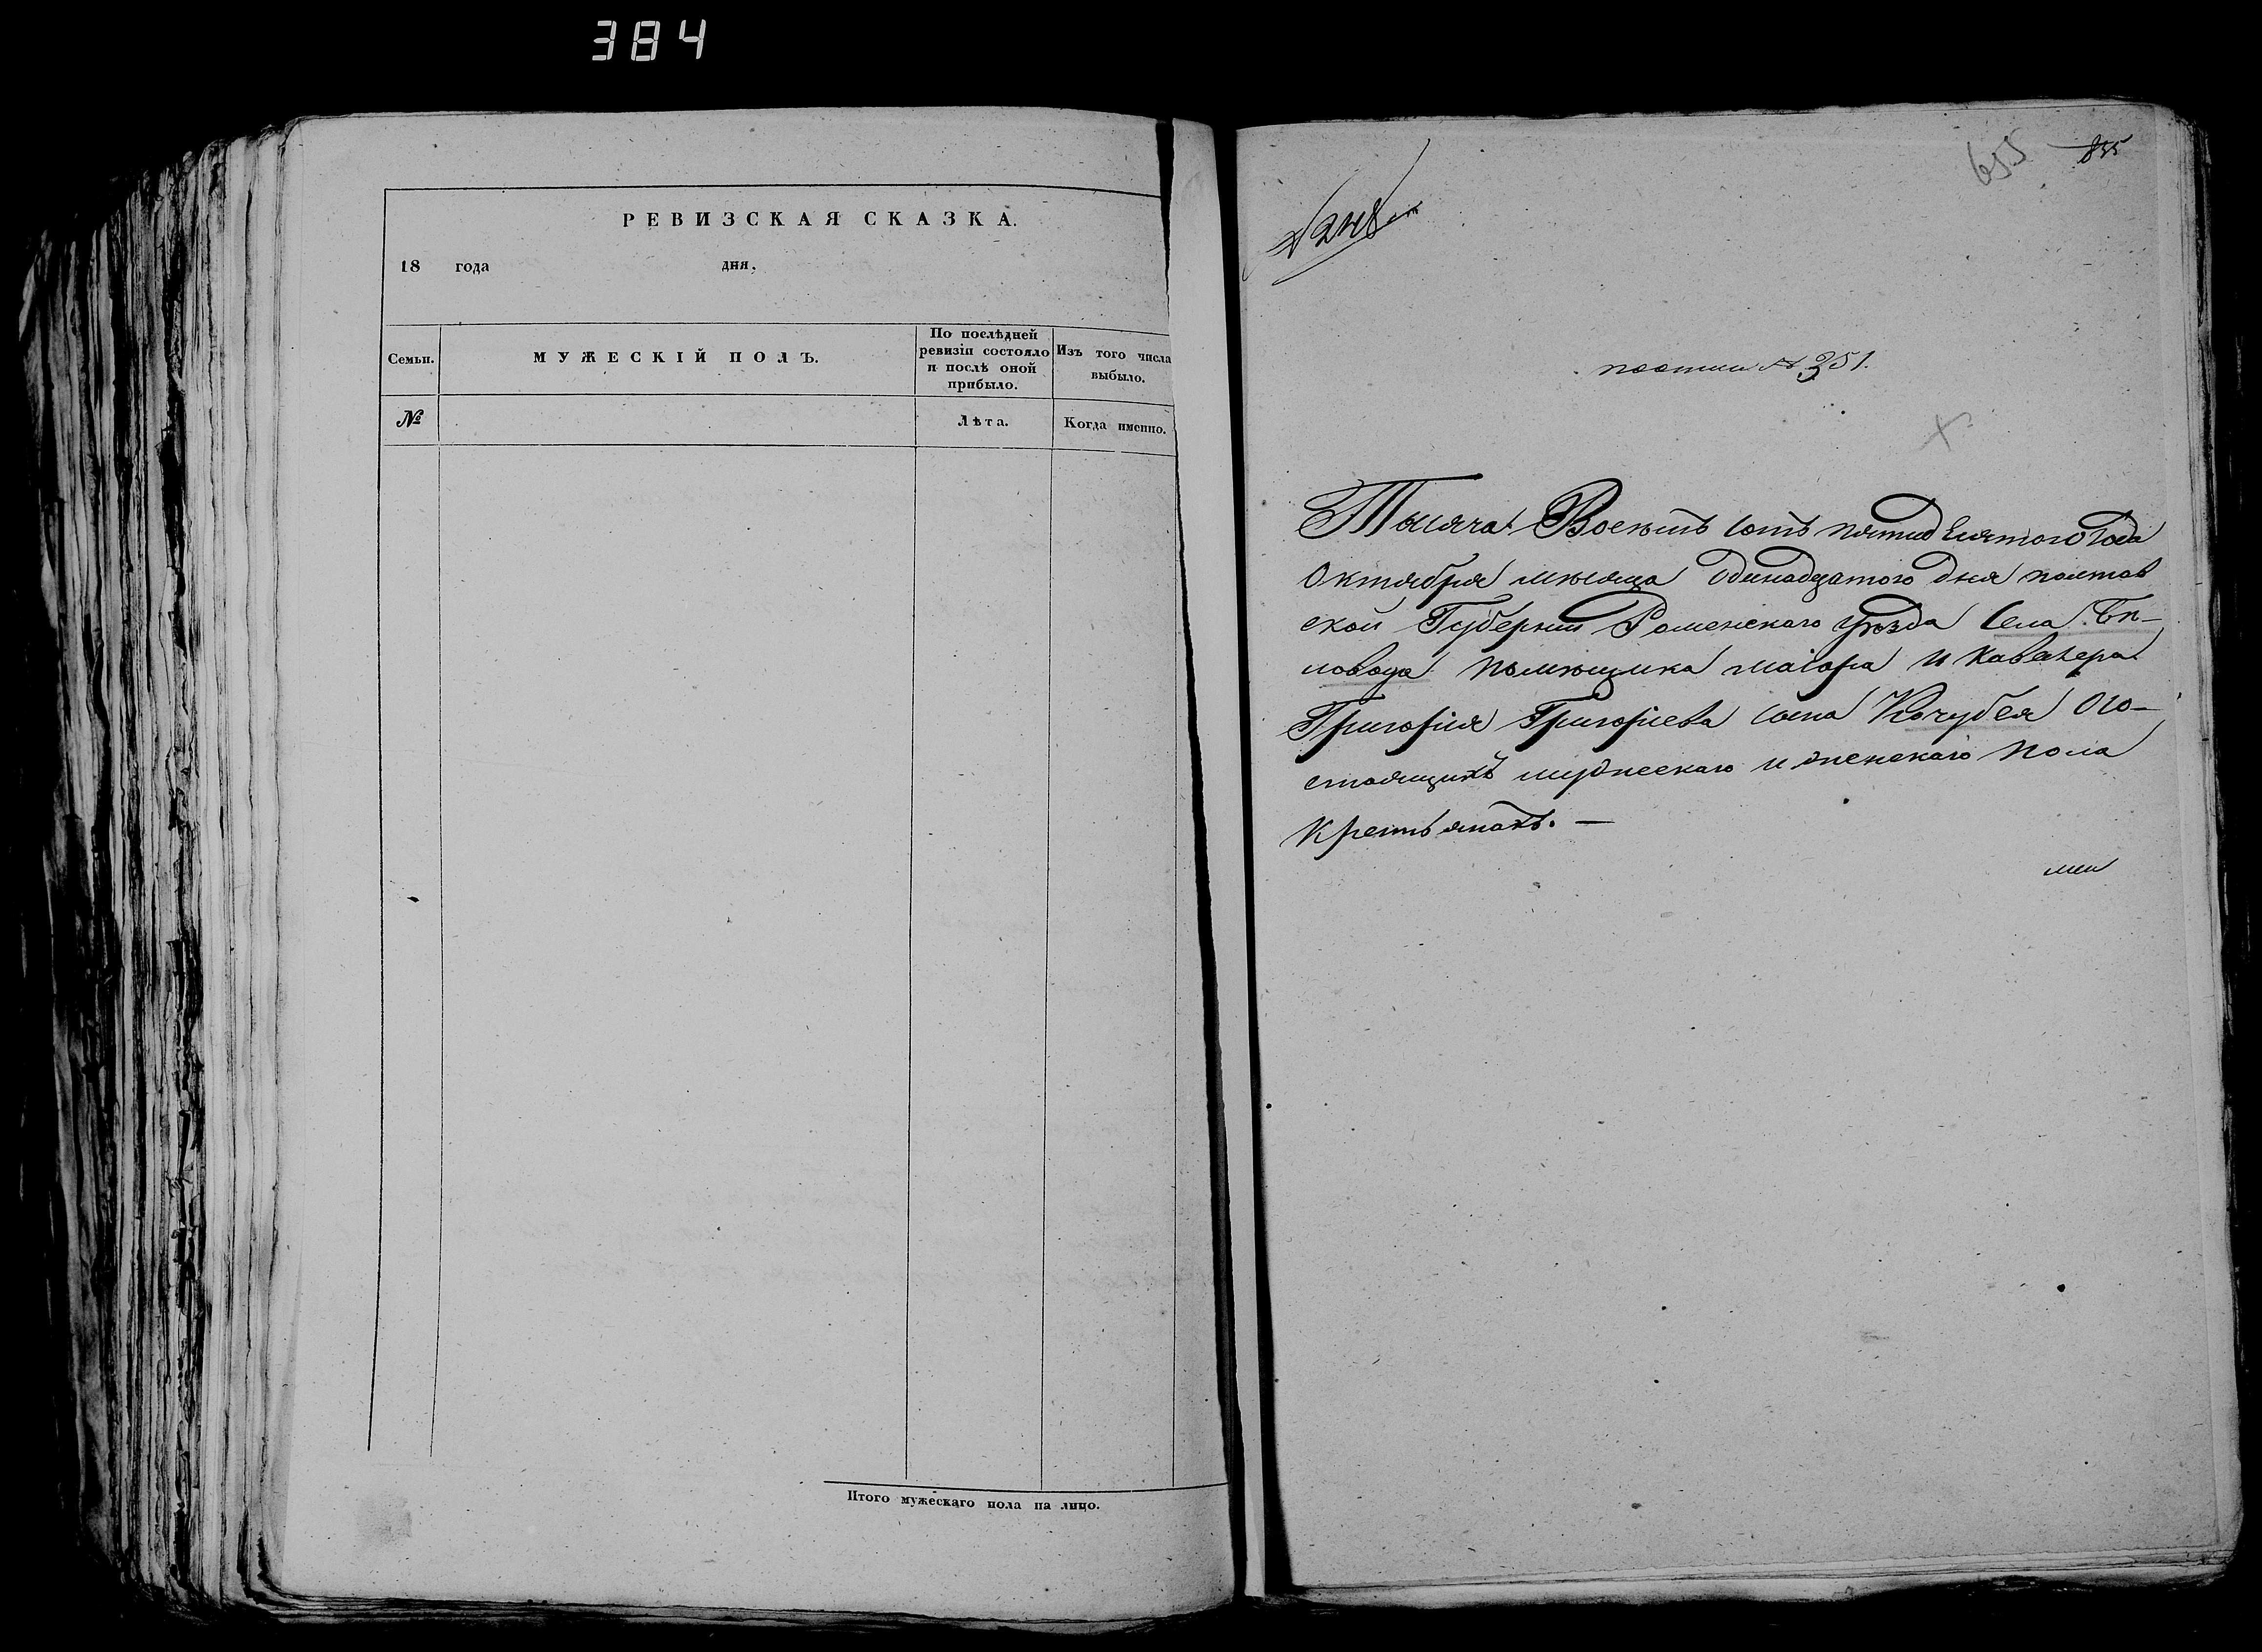 384
РЕВИЗСКАЯ СКАЗКА.
18 года дня.
Семьи.
МУЖЕСКІЙ ПОЛЪ.
По послѣдней
ревизіи состояло
и послѣ оной
прибыло.
Изъ того числа
выбыло.
№
Лѣта.
Когда именно.
Итого мужескаго пола на лицо.
655
835
№ 248
№ 351.
Тысяча Восемъ сотъ пятидесятого Года
Октября мѣсяца Одинадцатого Дня полтав
ской Губерніи Роменскаго уѣзда Села Бѣ-
ловода помѣщика маіора и Кавалера
Григорія Григоріева сына Кочубея О со-
стоящихъ мужескаго и женскаго пола
Крестьянахъ. —